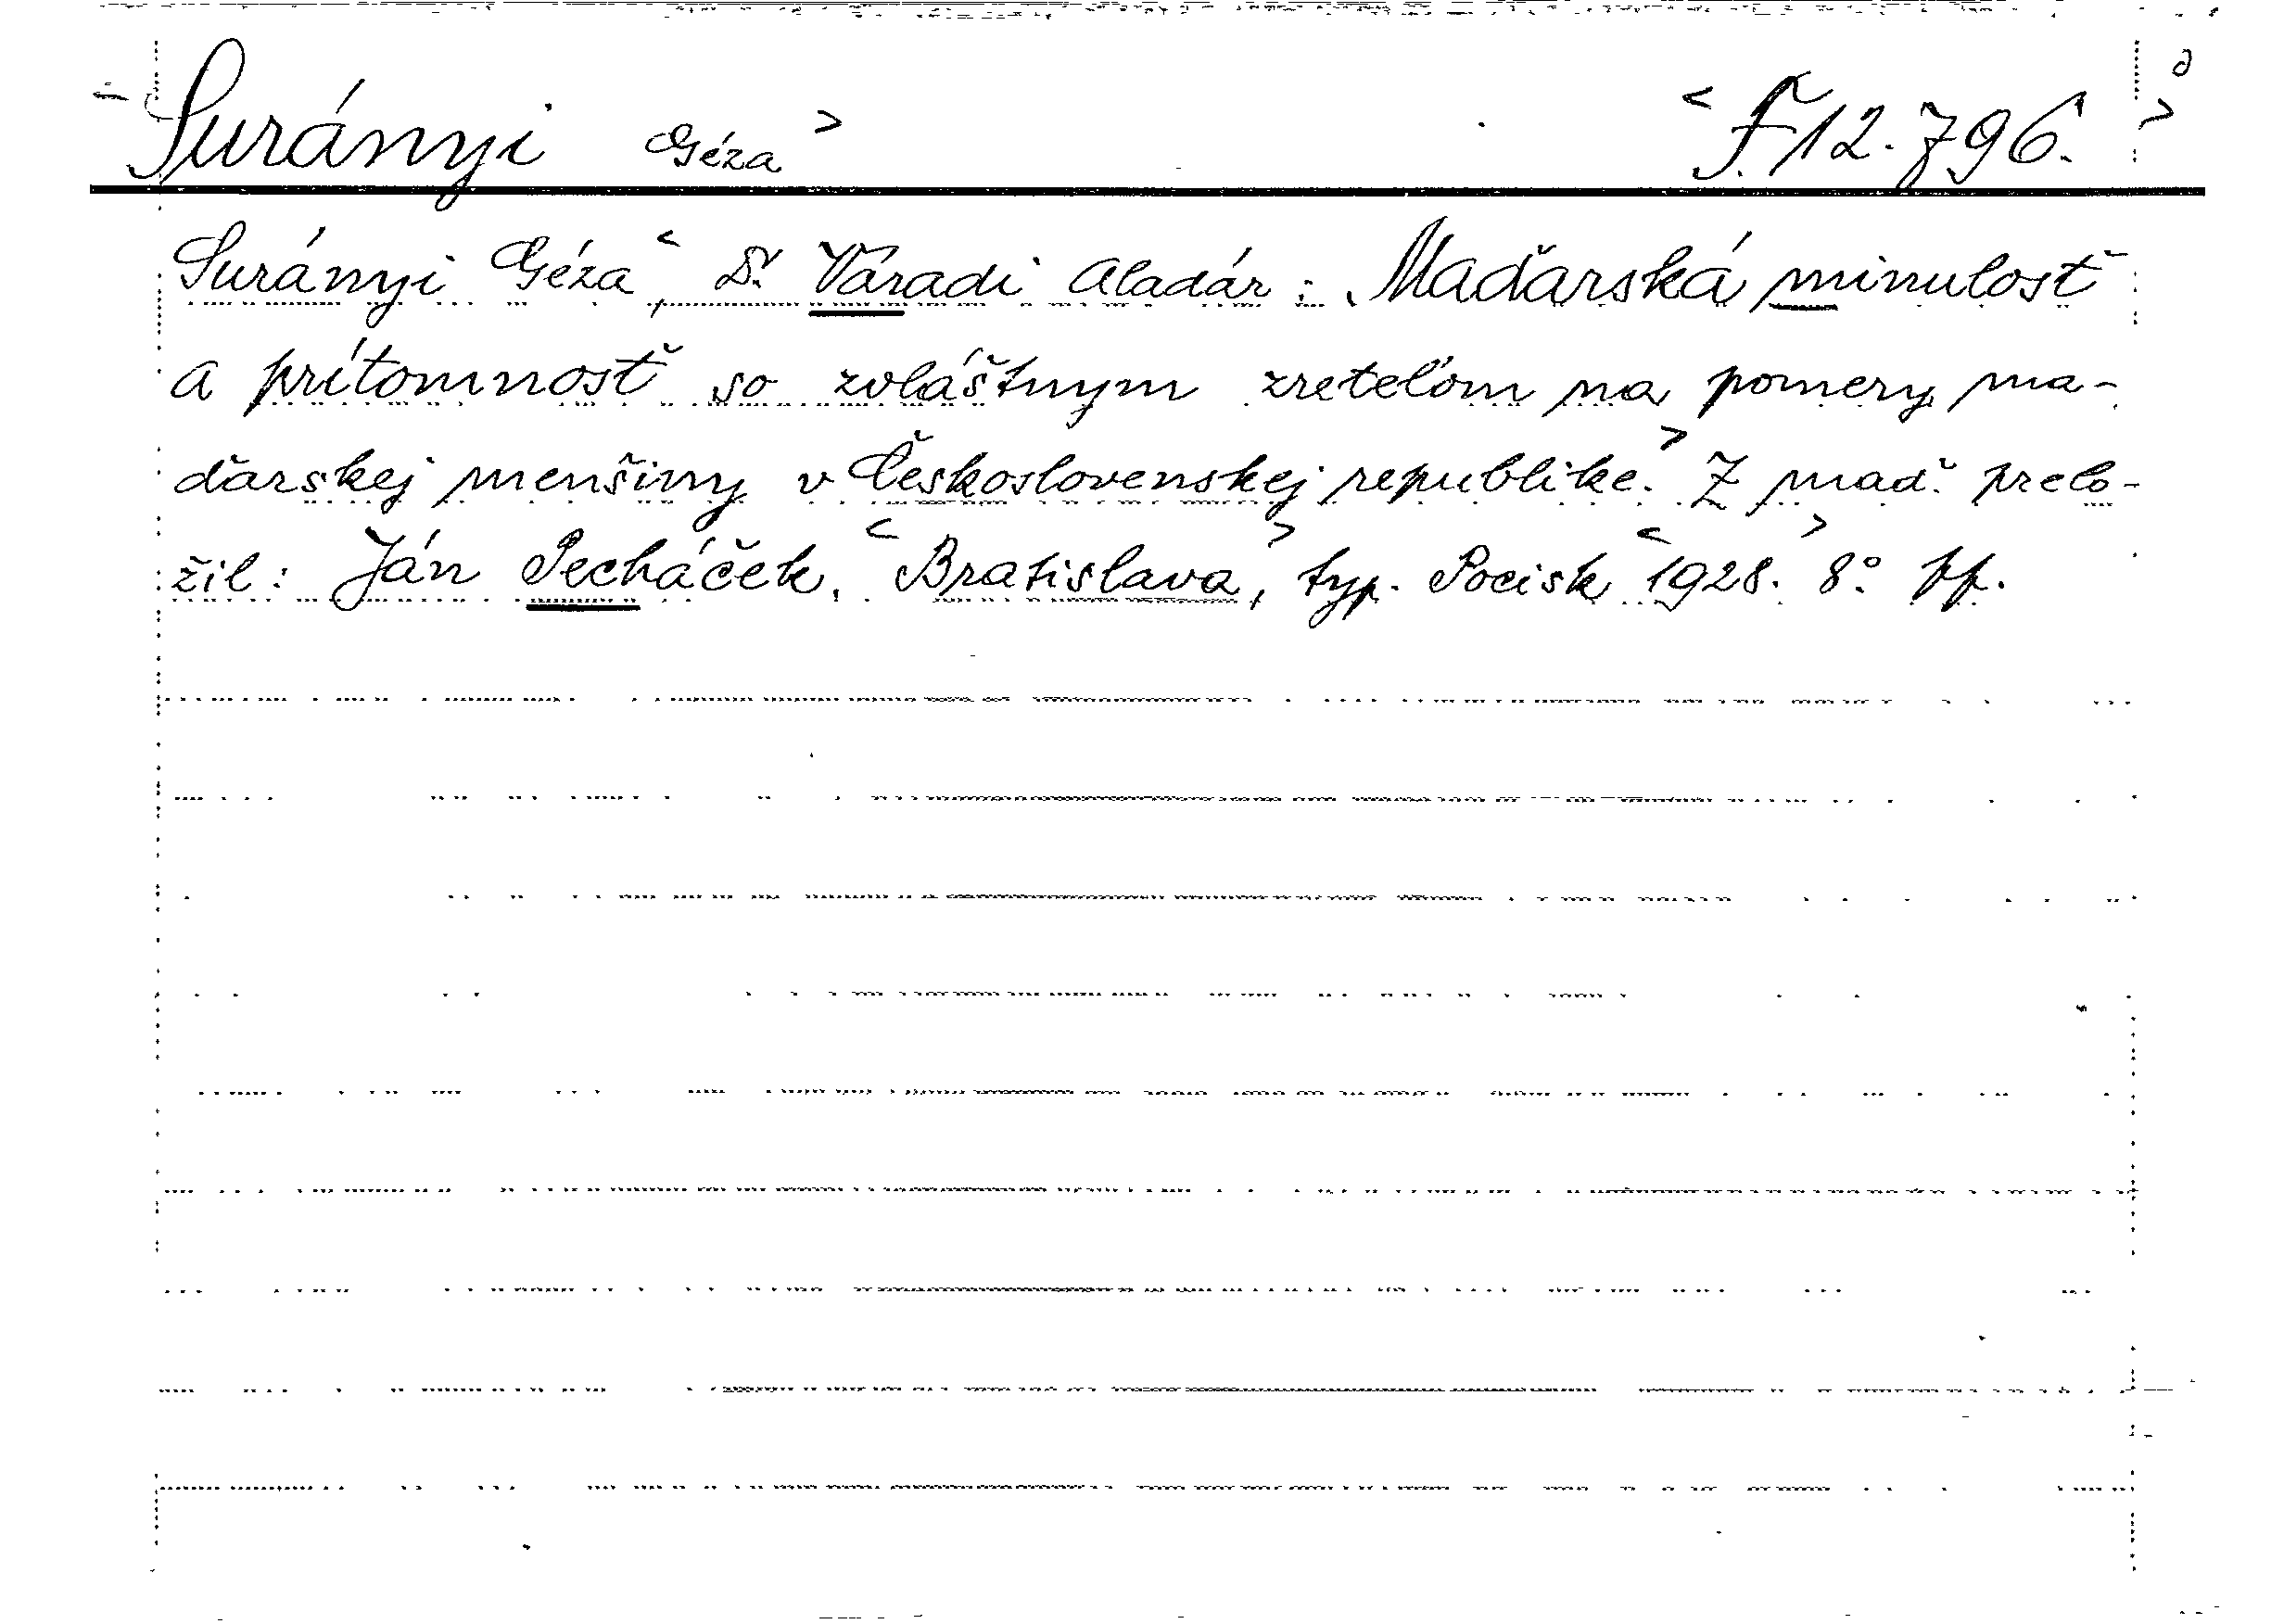 Surányi Géza > < F 12.796. >
Surányi Géza, < Dr. Váradi Aladár: Maďarská minulosť
a prítomnosť so zvláštnym zreteľom na pomery ma-
ďarskej menšiny v Československej republike. > Z maď. prelo-
žil: Ján Pecháček. < Bratislava, > typ. Pocisk < 1928. > 8° pp.